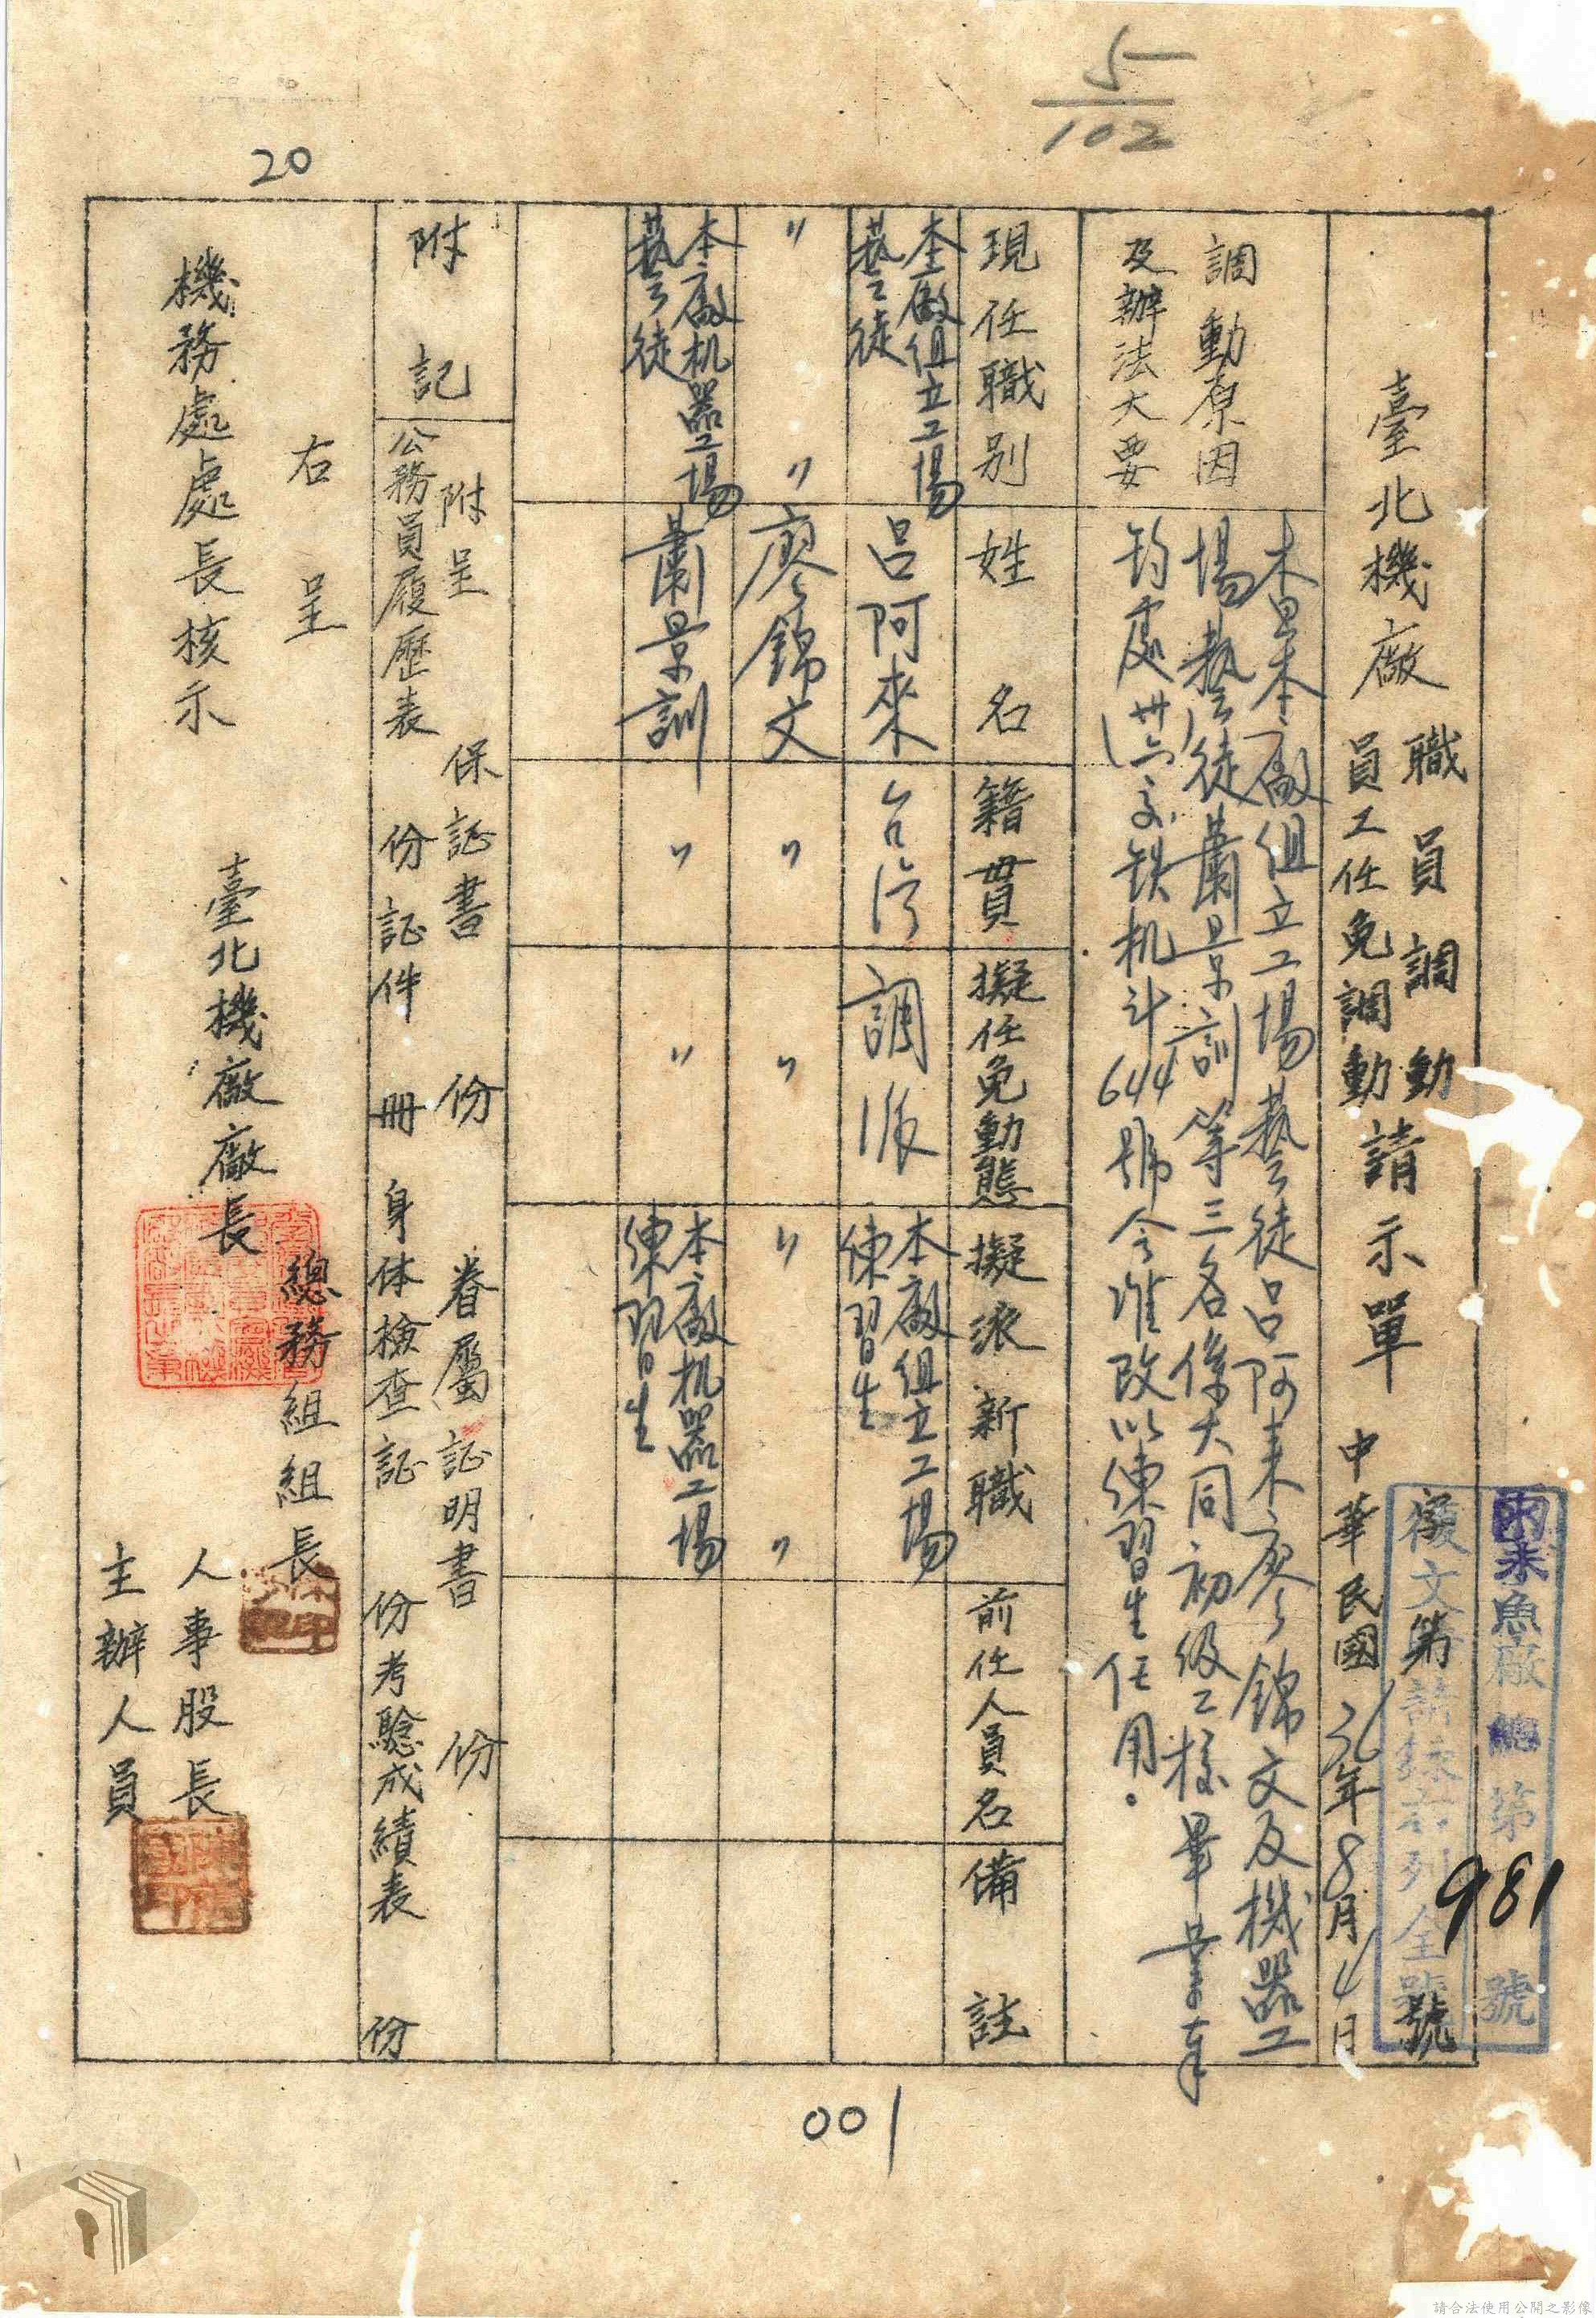 5
102
20
臺北機廠
職員調動
員工任免調動
請示單
中華民國36年8月4日
第
號
廠總第981號
覆文請錄右列全號
調動原因
及辦法大要
本廠組立工場藝徒呂阿来廖錦文及機器工
場藝徒蕭景訓等三名係大同初級工校畢業奉
鈞處卅六交铁机斗644號令准改以練習生任用。
現任職別
姓名
籍貫
擬任免動態
擬派新職
前任人員名
備註
本廠組立工場
藝徒
呂阿來
台湾
調派
本廠組立工場
練習生
〃
〃
廖錦文
〃
〃
〃
〃
本廠机器工場
藝徒
蕭景訓
〃
〃
本廠机器工場
練習生
附記
附呈
保証書
份
眷屬証明書
份
公務員履歷表
份証件
冊
身体檢查証
份考驗成績表
份
右呈
機務處處長核示
臺北機廠廠長
總務組組長
人事股長
主辦人員
001
請合法使用公開之影像